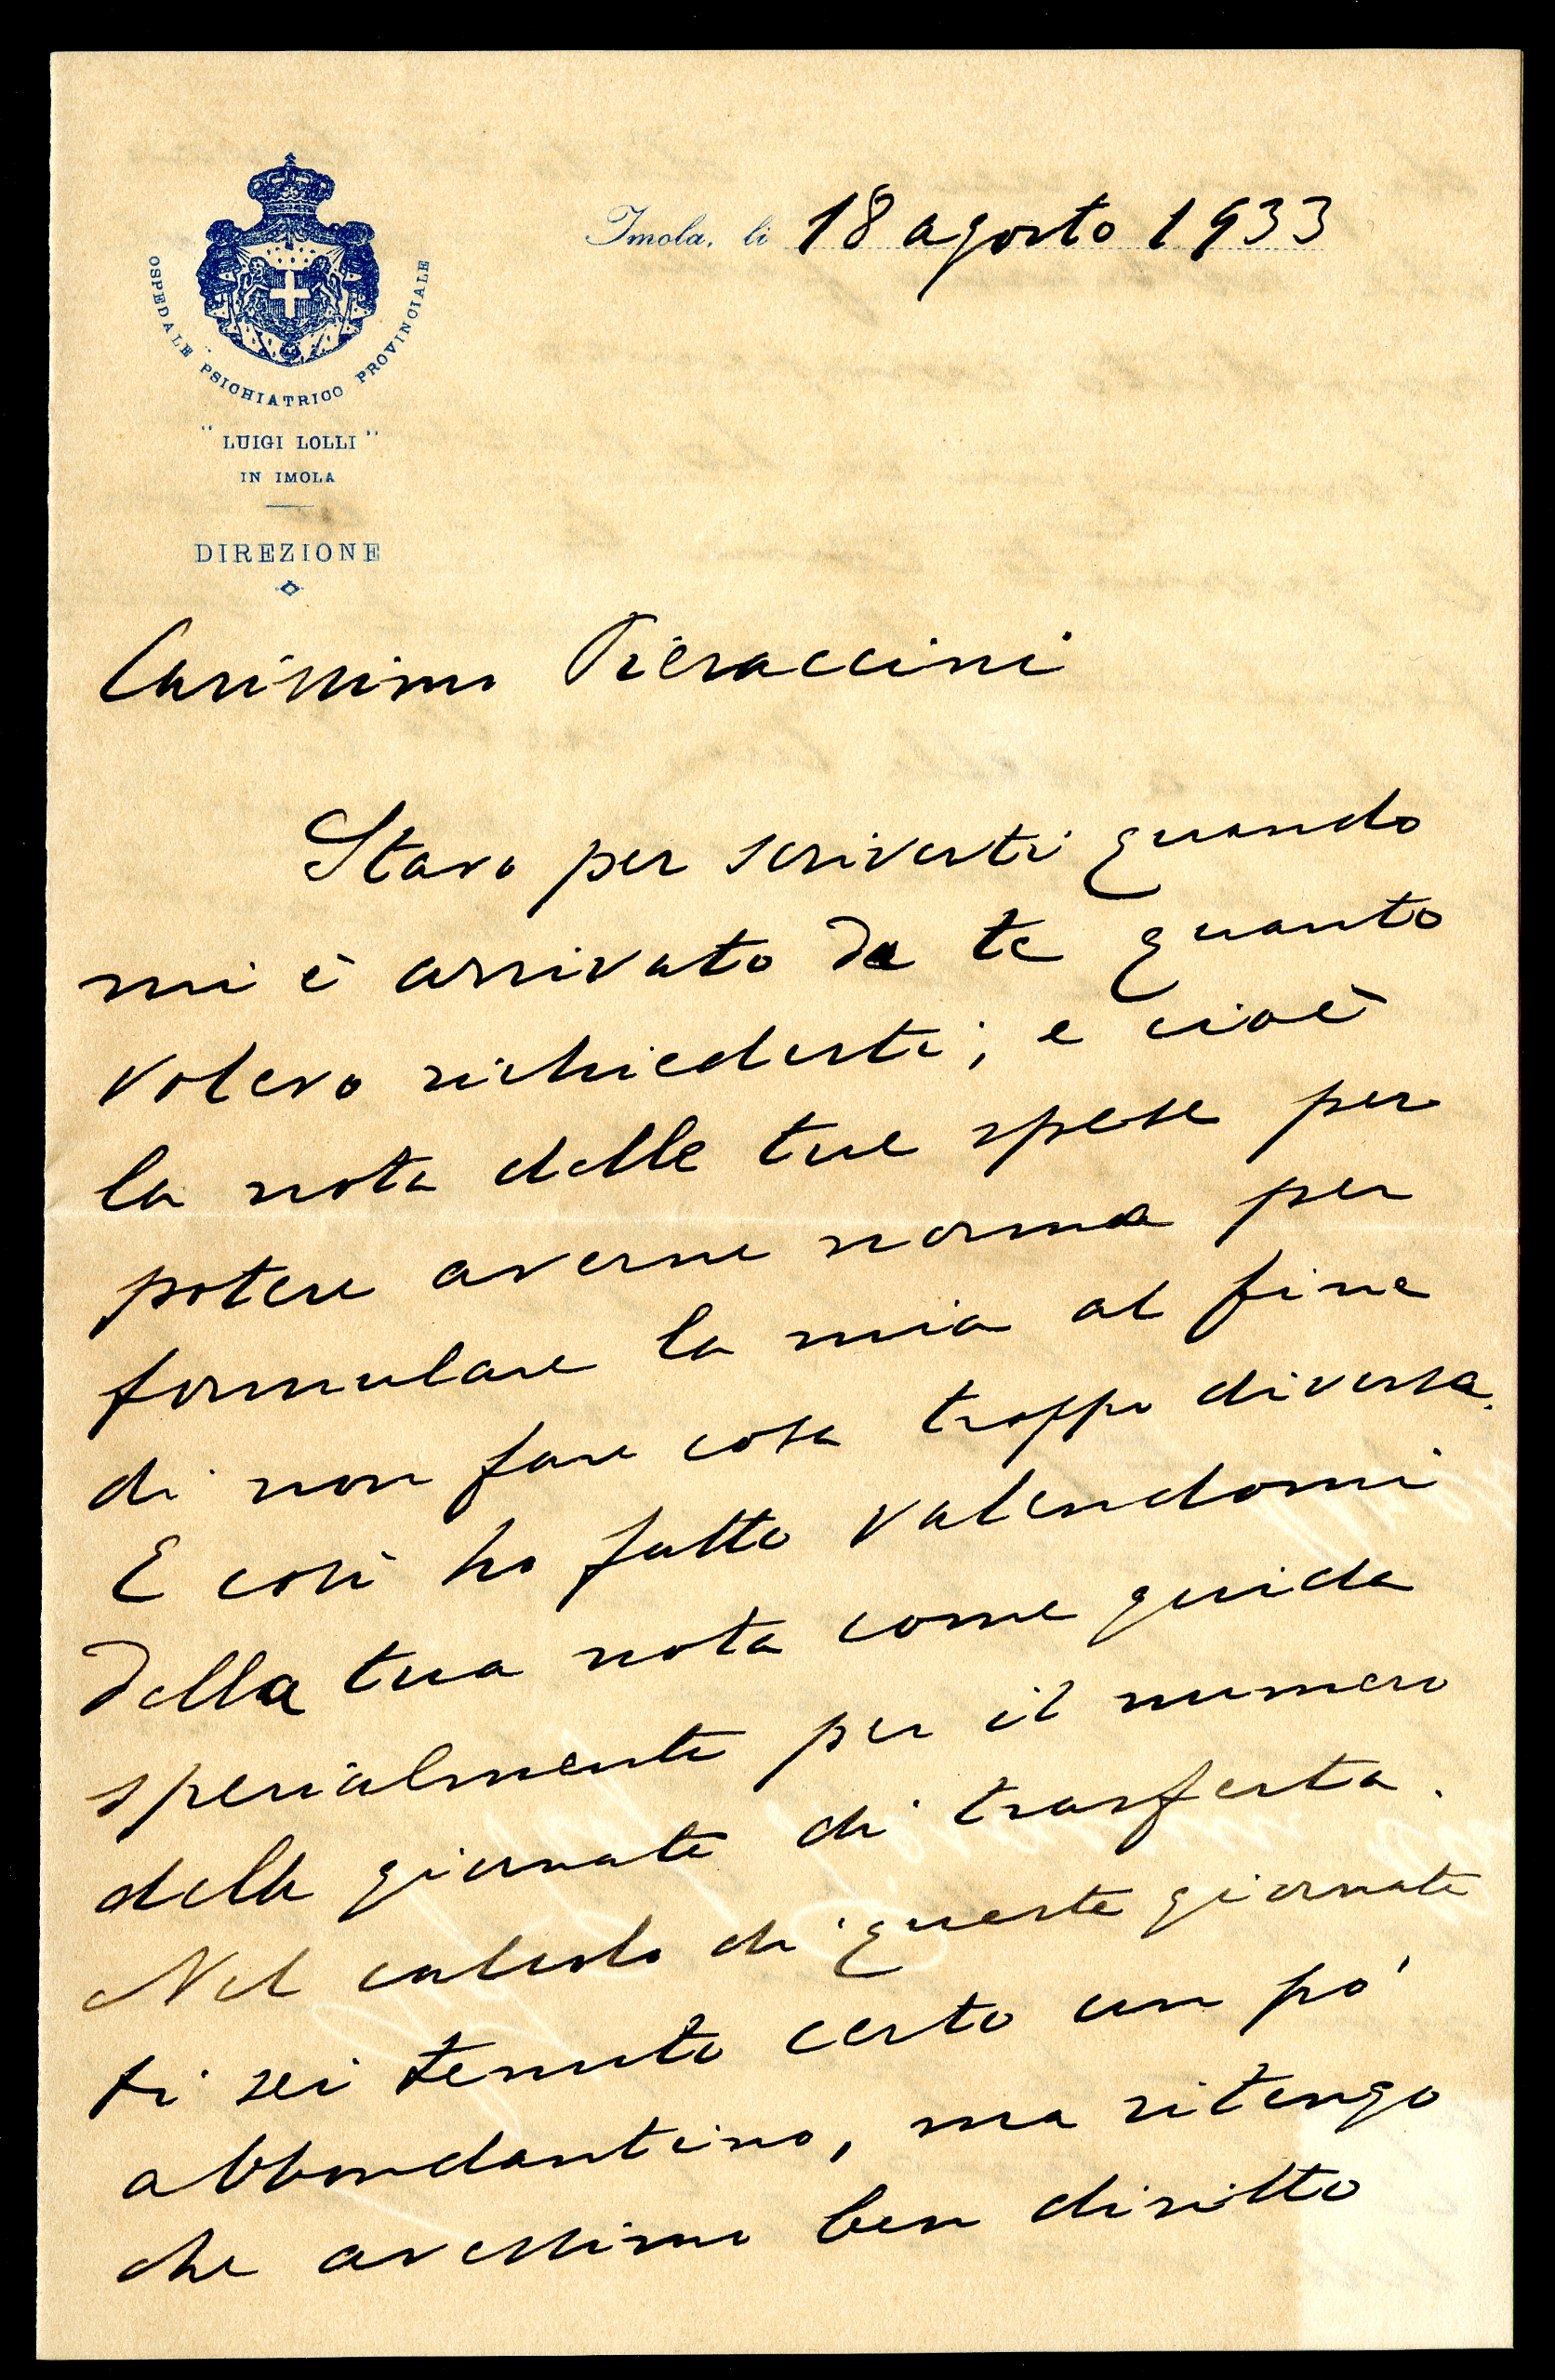 OSPEDALE PSICHIATRICO PROVINCIALE
"LUIGI LOLLI"
IN IMOLA
DIREZIONE
Imola, li 18 agosto 1933
Carissimo Pieraccini
Stavo per scriverti quando
mi è arrivato da te quanto
volevo richiederti; e cioè
la nota delle tue spese per
potere averne norma per
formulare la mia al fine
di non fare cosa troppo diversa.
E così ho fatto valendomi
della tua nota come guida
specialmente per il numero
delle giornate di trasferta.
Nel calcolo di queste giornate
ti sei tenuto certo un pò
abbondantino, ma ritengo
che avessimo ben diritto